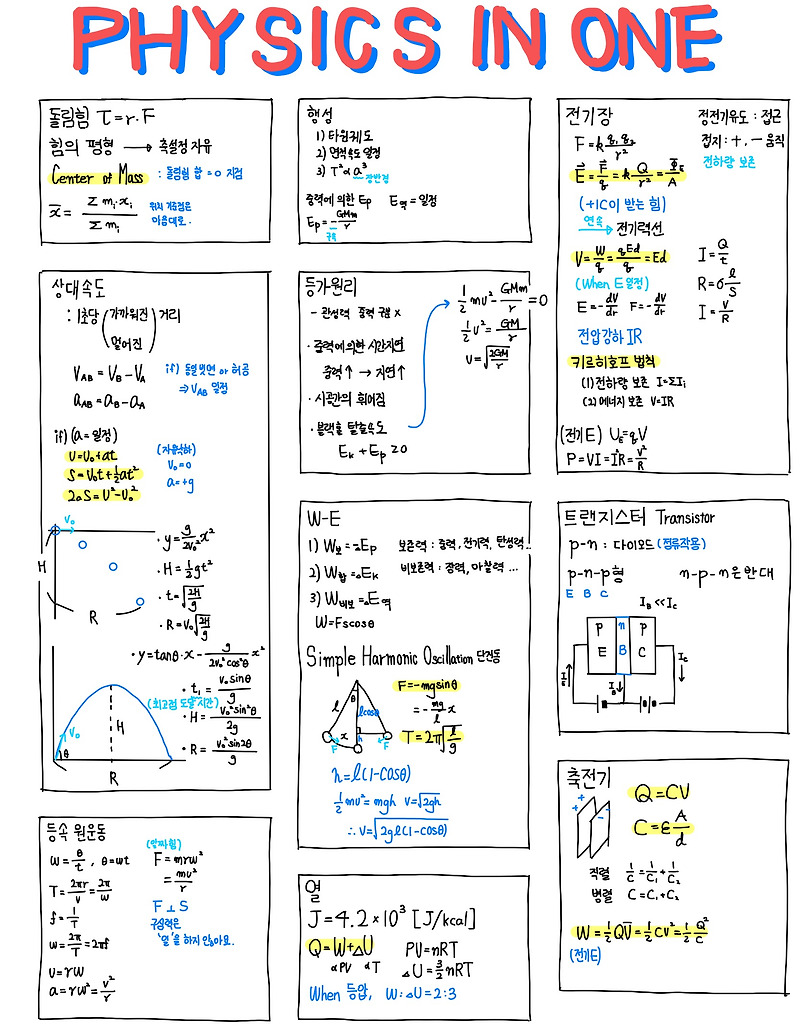 PHYSICS IN ONE
돌림힘 τ=r·F
힘의 평형 → 축설정 자유
Center of Mass : 돌림힘 합=0 지점
x̄ = Σmᵢ·xᵢ / Σmᵢ
위치 기준점은
마음대로.
상대속도
: 1초당 (가까워진 멀어진) 거리
V_AB = V_B - V_A
a_AB = a_B - a_A
if) 동일빗면 or 허공
⇒ V_AB 일정
if) (a=일정)
v=v₀+at
S=V₀t+½at²
2aS=v²-v₀²
(자유낙하)
V₀=0
a=+g
V₀
H
R
· y=g/2v₀² x²
· H=½gt²
· t=√(2H/g)
· R=V₀√(2H/g)
· y=tanθ·x - g/(2v₀²cos²θ) x²
· t₁=v₀sinθ/g
(최고점 도달시간)
· H=v₀²sin²θ/2g
· R=v₀²sin2θ/g
V₀
θ
H
R
등속 원운동
w=θ/t, θ=wt
T=2πr/v=2π/w
f=1/T
w=2π/T=2πf
v=rw
a=rw²=v²/r
(알짜힘)
F=mrw²
=mv²/r
F⊥S
구심력은
'일'을 하지 않아요.
행성
1) 타원궤도
2) 면적속도 일정
3) T²∝a³
장반경
중력에 의한 Ep E역=일정
Ep=-GMm/r
등가원리
- 관성력 중력 구분 x
· 중력에 의한 시간지연
중력↑ → 지연↑
· 시공간의 휘어짐
· 블랙홀 탈출속도
Ek+Ep≥0
½mv²-GMm/r=0
½v²=GM/r
v=√(2GM/r)
W-E
1) W보=-ΔEp 보존력 : 중력, 전기력, 탄성력..
2) W합=ΔEk 비보존력 : 장력, 마찰력 ...
3) W비보=ΔE역
W=Fscosθ
Simple Harmonic Oscillation 단진동
θ
l
lcosθ
x
h
F
F
F=-mgsinθ
=-mg/l x
T=2π√(l/g)
h=l(1-COSθ)
½mv²=mgh v=√2gh
∴ v=√2gl(1-COSθ)
열
J=4.2×10³ [J/kcal]
Q=W+ΔU PV=nRT
∝PV ∝T ΔU=3/2nRT
When 등압, W:ΔU=2:3
전기장
정전기유도 : 접근
접지 : +, - 움직
전하량 보존
F=k q₁q₂/r²
E=F/q=k Q/r²=Φ_E/A
(+1C이 받는 힘)
연속
→ 전기력선
V=W/q=qEd/q=Ed
(When E일정)
E=-dV/dr F=-dV/dr
전압강하 IR
I=Q/t
R=σ l/S
I=V/R
키르히호프 법칙
(1) 전하량 보존 I=ΣIᵢ
(2) 에너지 보존 V=IR
(전기E) U_E=qV
P=VI=I²R=V²/R
트랜지스터 Transistor
p-n : 다이오드 (정류작용)
p-n-p형 n-p-n은 반대
E B C
I_B≪I_C
P n P
E B C
I_E I_B I_C
축전기
+ -
+ -
Q=CV
C=ε A/d
직렬 1/C=1/C₁+1/C₂
병렬 C=C₁+C₂
W=½QV=½CV²=½Q²/C
(전기E)